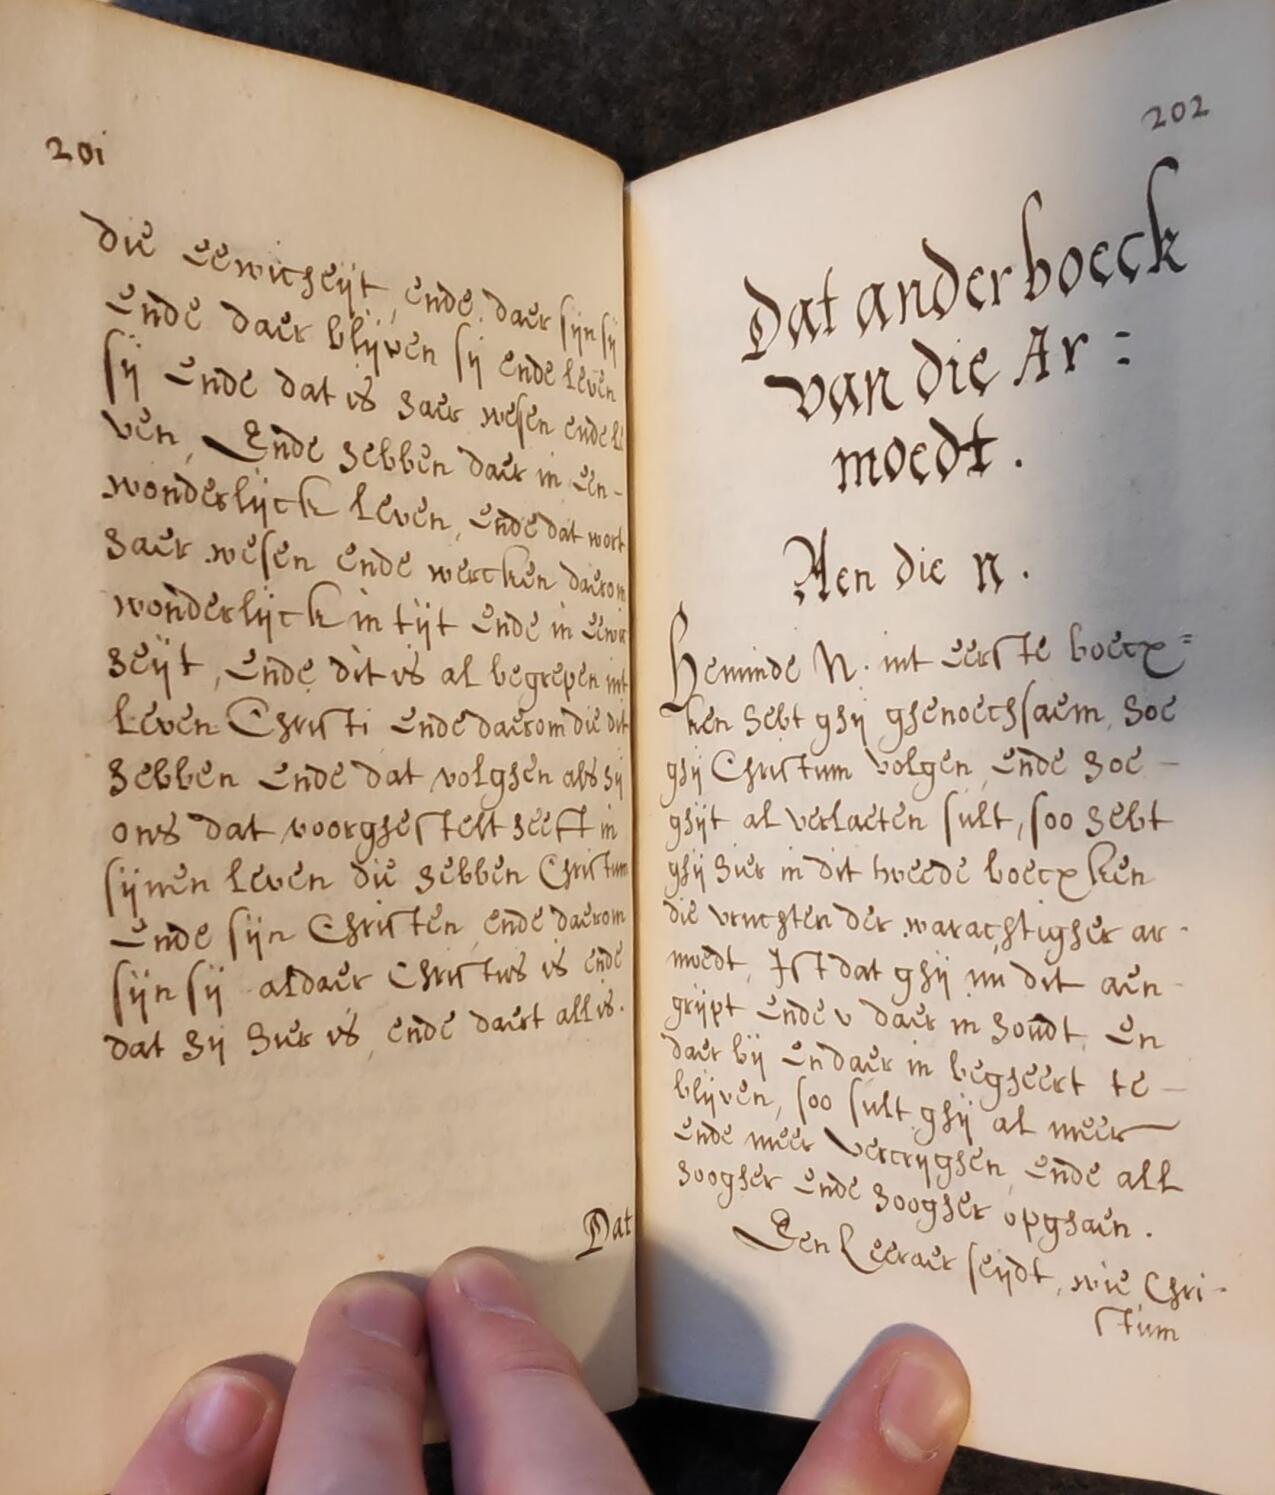 201
die eewicheijt, ende daer sijn sij
ende daer blijven sij ende leven
sij ende dat is haer wesen ende le
ven, Ende hebben daer in een-
wonderlijck leven, ende dat wort
haer wesen ende wercken daerom
wonderlijck in tijt ende in eewic
heijt, ende dit is al begrepen int
leven Christi ende daerom die dit
hebben ende dat volghen als hij
ons dat voorghestelt heeft in
sijnen leven die hebben Christum
ende sijn Christen, ende daerom
sijn sij aldaer Christus is ende
dat hij hier is, ende daert all is.
Dat
202
Dat ander boeck
van die Ar =
moedt.
Aen die N.
Beminde N. int eerste boecx=
ken hebt ghij ghenoechsaem, hoe
ghij Christum volgen, ende hoe -
ghijt al verlaeten sult, soo hebt
ghij hier in dit tweede boecxken
die vruchten der warachtigher ar-
moedt, Ist dat ghij nu dit aen-
grijpt ende v daer in houdt, en
daer bij en daer in begheert te -
blijven, soo sult ghij al meer
ende meer vercrijghen, ende all
hoogher ende hoogher opghaen.
Een Leeraer seijdt, wie Chri-
stum